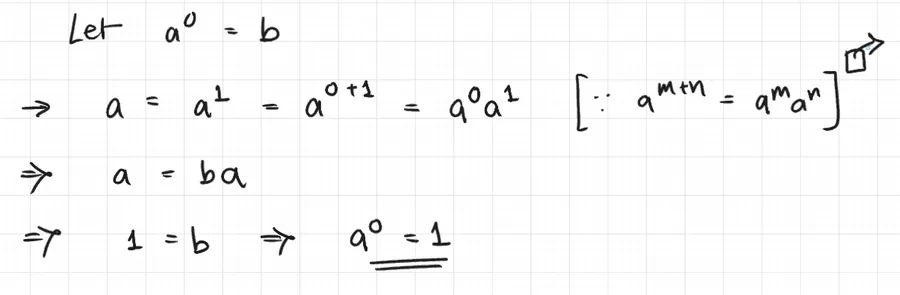 Let a⁰ = b
→ a = a¹ = a⁰⁺¹ = a⁰a¹ [∵ aᵐ⁺ⁿ = aᵐaⁿ]
⇒ a = ba
⇒ 1 = b ⇒ a⁰ = 1